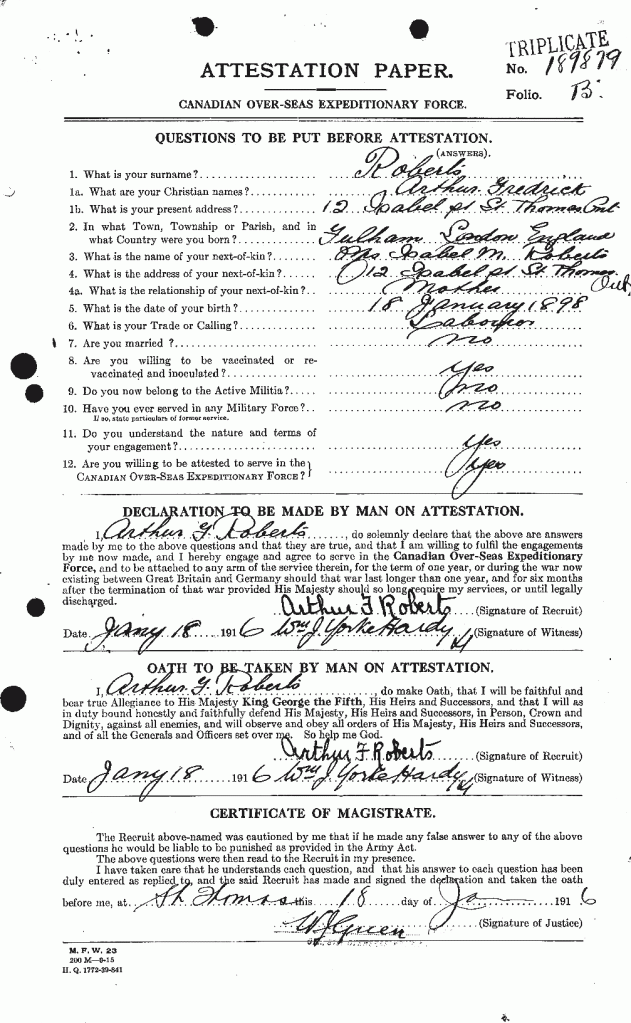 TRIPLICATE
No. 189879
Folio. B.
ATTESTATION PAPER.
CANADIAN OVER-SEAS EXPEDITIONARY FORCE.
QUESTIONS TO BE PUT BEFORE ATTESTATION.
(ANSWERS).
1. What is your surname? Roberts
1a. What are your Christian names? Arthur Fredrick
1b. What is your present address? 12 Isabel st St. Thomas Ont
2. In what Town, Township or Parish, and in
what Country were you born? Fulham London England
3. What is the name of your next-of-kin? Mrs Isabel M. Roberts
4. What is the address of your next-of-kin? 12 Isabel st St Thomas Ont
4a. What is the relationship of your next-of-kin? Mother
5. What is the date of your birth? 18 January 1898
6. What is your Trade or Calling? Laborer
7. Are you married? no
8. Are you willing to be vaccinated or re-
vaccinated and inoculated? yes
9. Do you now belong to the Active Militia? no
10. Have you ever served in any Military Force? no
If so, state particulars of former service.
11. Do you understand the nature and terms of
your engagement? yes
12. Are you willing to be attested to serve in the
CANADIAN OVER-SEAS EXPEDITIONARY FORCE? yes
DECLARATION TO BE MADE BY MAN ON ATTESTATION.
I, Arthur F. Roberts, do solemnly declare that the above are answers
made by me to the above questions and that they are true, and that I am willing to fulfil the engagements
by me now made, and I hereby engage and agree to serve in the Canadian Over-Seas Expeditionary
Force, and to be attached to any arm of the service therein, for the term of one year, or during the war now
existing between Great Britain and Germany should that war last longer than one year, and for six months
after the termination of that war provided His Majesty should so long require my services, or until legally
discharged.
Arthur F Roberts (Signature of Recruit)
Date Jany 18 1916 Wm J Yorke Hardy (Signature of Witness)
OATH TO BE TAKEN BY MAN ON ATTESTATION.
I, Arthur F. Roberts, do make Oath, that I will be faithful and
bear true Allegiance to His Majesty King George the Fifth, His Heirs and Successors, and that I will as
in duty bound honestly and faithfully defend His Majesty, His Heirs and Successors, in Person, Crown and
Dignity, against all enemies, and will observe and obey all orders of His Majesty, His Heirs and Successors,
and of all the Generals and Officers set over me. So help me God.
Arthur F Roberts (Signature of Recruit)
Date Jany 18 1916 Wm J Yorke Hardy (Signature of Witness)
CERTIFICATE OF MAGISTRATE.
The Recruit above-named was cautioned by me that if he made any false answer to any of the above
questions he would be liable to be punished as provided in the Army Act.
The above questions were then read to the Recruit in my presence.
I have taken care that he understands each question, and that his answer to each question has been
duly entered as replied to, and the said Recruit has made and signed the declaration and taken the oath
before me, at St Thomas this 18 day of Ja 1916
(Signature of Justice)
M. F. W. 23
200 M—9-15
H. Q. 1772-39-841